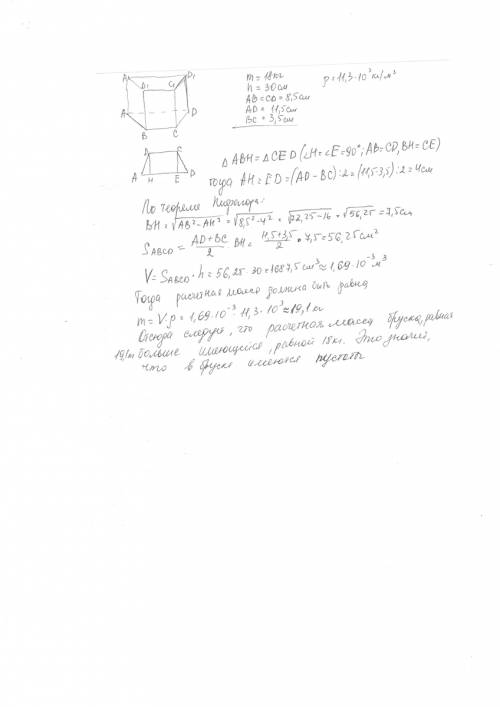 A₁ D₁
B₁ C₁
A D
B C
m = 18кг
h = 30см
AB = CD = 8,5см
AD = 11,5см
BC = 3,5см
ρ = 11,3·10³ кг/м³
B C
A H E D
△ABH = △CED (∠H = ∠E = 90°; AB = CD, BH = CE)
тогда AH = ED = (AD − BC) : 2 = (11,5-3,5) : 2 = 4см
По теореме Пифагора:
BH = √AB² − AH² = √8,5² − 4² = √72,25 − 16 = √56,25 = 7,5см
S ABCD = AD + BC / 2 · BH = 11,5 + 3,5 / 2 · 7,5 = 56,25 см²
V = S ABCD · h = 56,25 · 30 = 1687,5 см³ ≈ 1,69 · 10⁻³ м³
Тогда расчетная масса должна быть равна
m = V · ρ = 1,69 · 10⁻³ · 11,3 · 10³ ≈ 19,1 кг
Отсюда следует, что расчетная масса бруска, равная
больше имеющейся, равной 18 кг. Это значит,
что в бруске имеются пустоты